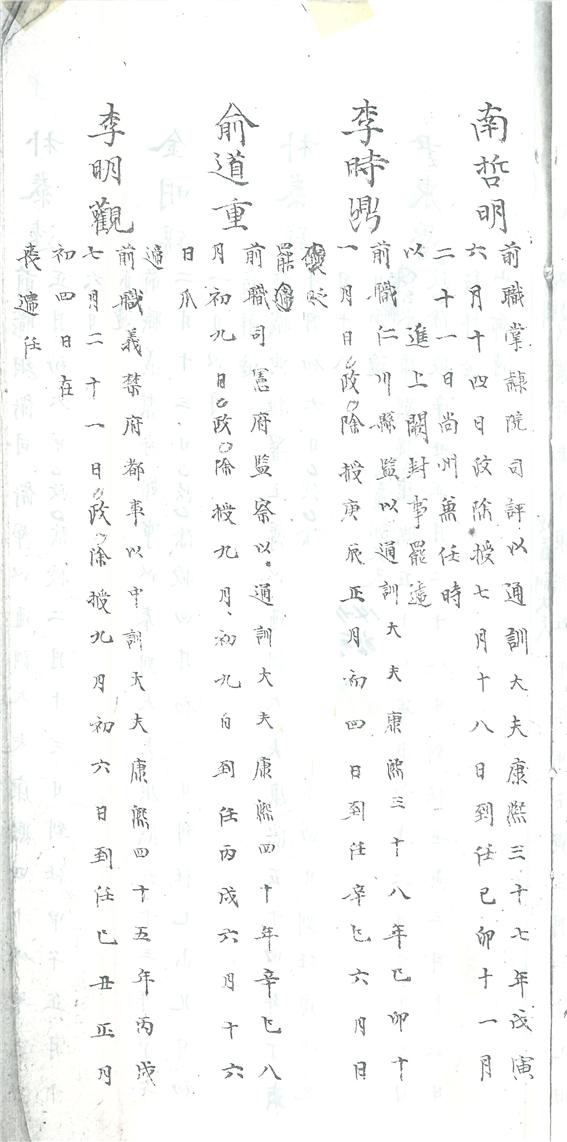 南哲明
前職掌隸院司評以通訓大夫康熙三十七年戊寅
六月十四日政除授七月十八日到任己卯十一月
二十一日尚州兼任時
以進上闕封事罷遞
李時鼎
前職仁川縣監以通訓大夫康熙三十八年己卯十
一月日政除授庚辰正月初四日到任辛巳六月日
貶
罷
俞道重
前職司憲府監察以通訓大夫康熙四十年辛巳八
月初九日政除授九月初九日到任丙戌六月十六
日瓜
遞
李明觀
前職義禁府都事以中訓大夫康熙四十五年丙戌
七六月二十一日政除授九月初六日到任己丑正月
初四日在
喪遞任